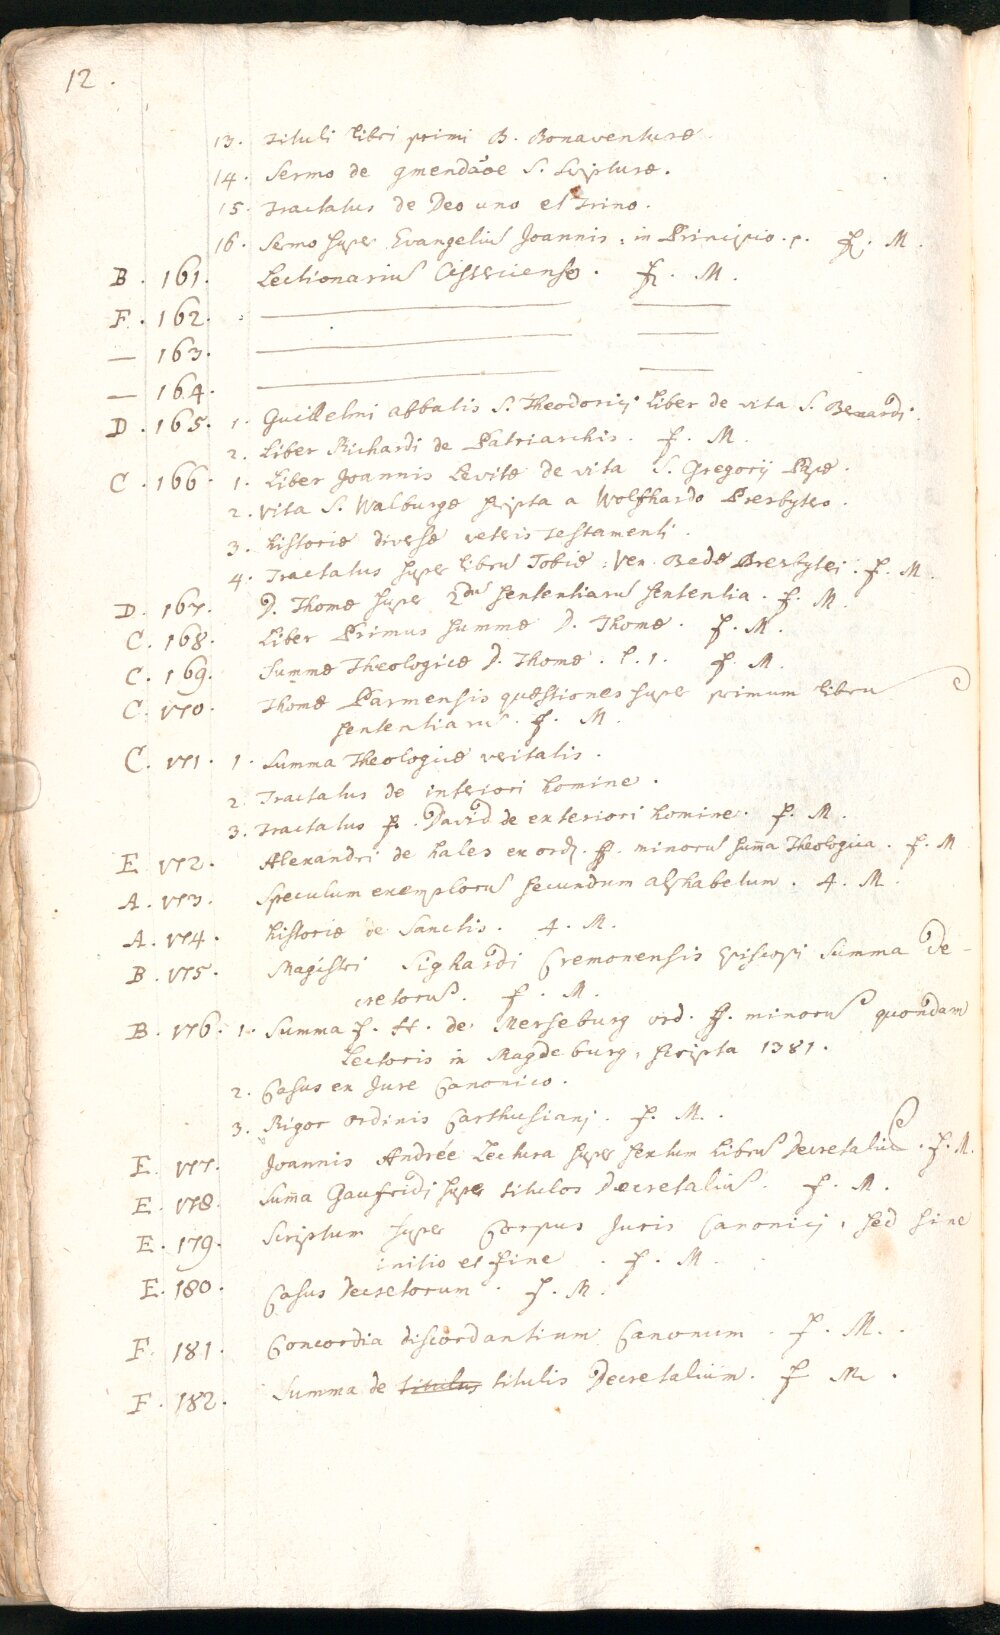 12.
13. Tituli libri primi B. Bonaventuræ.
14. Sermo de gmendãõe S. Scripturæ.
15. Tractatus de Deo uno et Trino.
16. Sermo super Evangeliũ Joannis: in Principio. f. M.
B. 161. Lectionariũ Cisterciense. f. M.
F. 162.
— 163.
— 164.
D. 165. 1. Guilelmi abbatis S. Theodorici Liber de vita S. Bernardi.
2. Liber Richardi de Patriarchis. f. M.
C. 166. 1. Liber Joannis Levitæ de vita S. Gregorij Papæ.
2. Vita S. Walburgæ scripta a Wolfhardo Presbytero.
3. Historiæ diversæ veteris Testamenti.
4. Tractatus super librũ Tobiæ: Ven. Bedæ Presbyteri. f. M.
D. 167. D. Thomæ super 2dũ sententiarũ sententia. f. M.
C. 168. Liber Primus summæ D. Thomæ. f. M.
C. 169. Summæ Theologicæ D. Thomæ. P. 1. f. M.
C. 170. Thomæ Parmensis quæstiones super primum librũ
sententiarũ. f. M.
C. 171. 1. Summa Theologicæ veritatis.
2. Tractatus de interiori homine.
3. Tractatus f. David de exteriori homine. f. M.
E. 172. Alexandri de hales ex ord. ff. minorũ sum̃a Theologica. f. M
A. 173. Speculum exemplorũ secundum alphabetum. 4. M.
A. 174. Historiæ de Sanctis. 4. M.
B. 175. Magistri Sighardi Cremonensis Episcopi Summa De-
cretorũ. f. M.
B. 176. 1. Summa f. H. de Merseburg ord. ff. minorũ quondam
Lectoris in Magdeburg, scripta 1381.
2. Casus ex Jure Canonico.
3. Rigor ordinis Carthusiani. f. M.
E. 177. Joannis Andrée Lectura super sextum Librũ Decretaliũ. f. M.
E. 178. Sum̃a Gaufridi super titulos Decretaliũ. f. M.
E. 179. Scriptum super Corpus Juris Canonici, sed sine
initio et fine. f. M.
E. 180. Casus Decretorum. f. M.
F. 181. Concordia discordantium Canonum. f. M.
F. 182. Summa de titulus titulis Decretalium. f M.